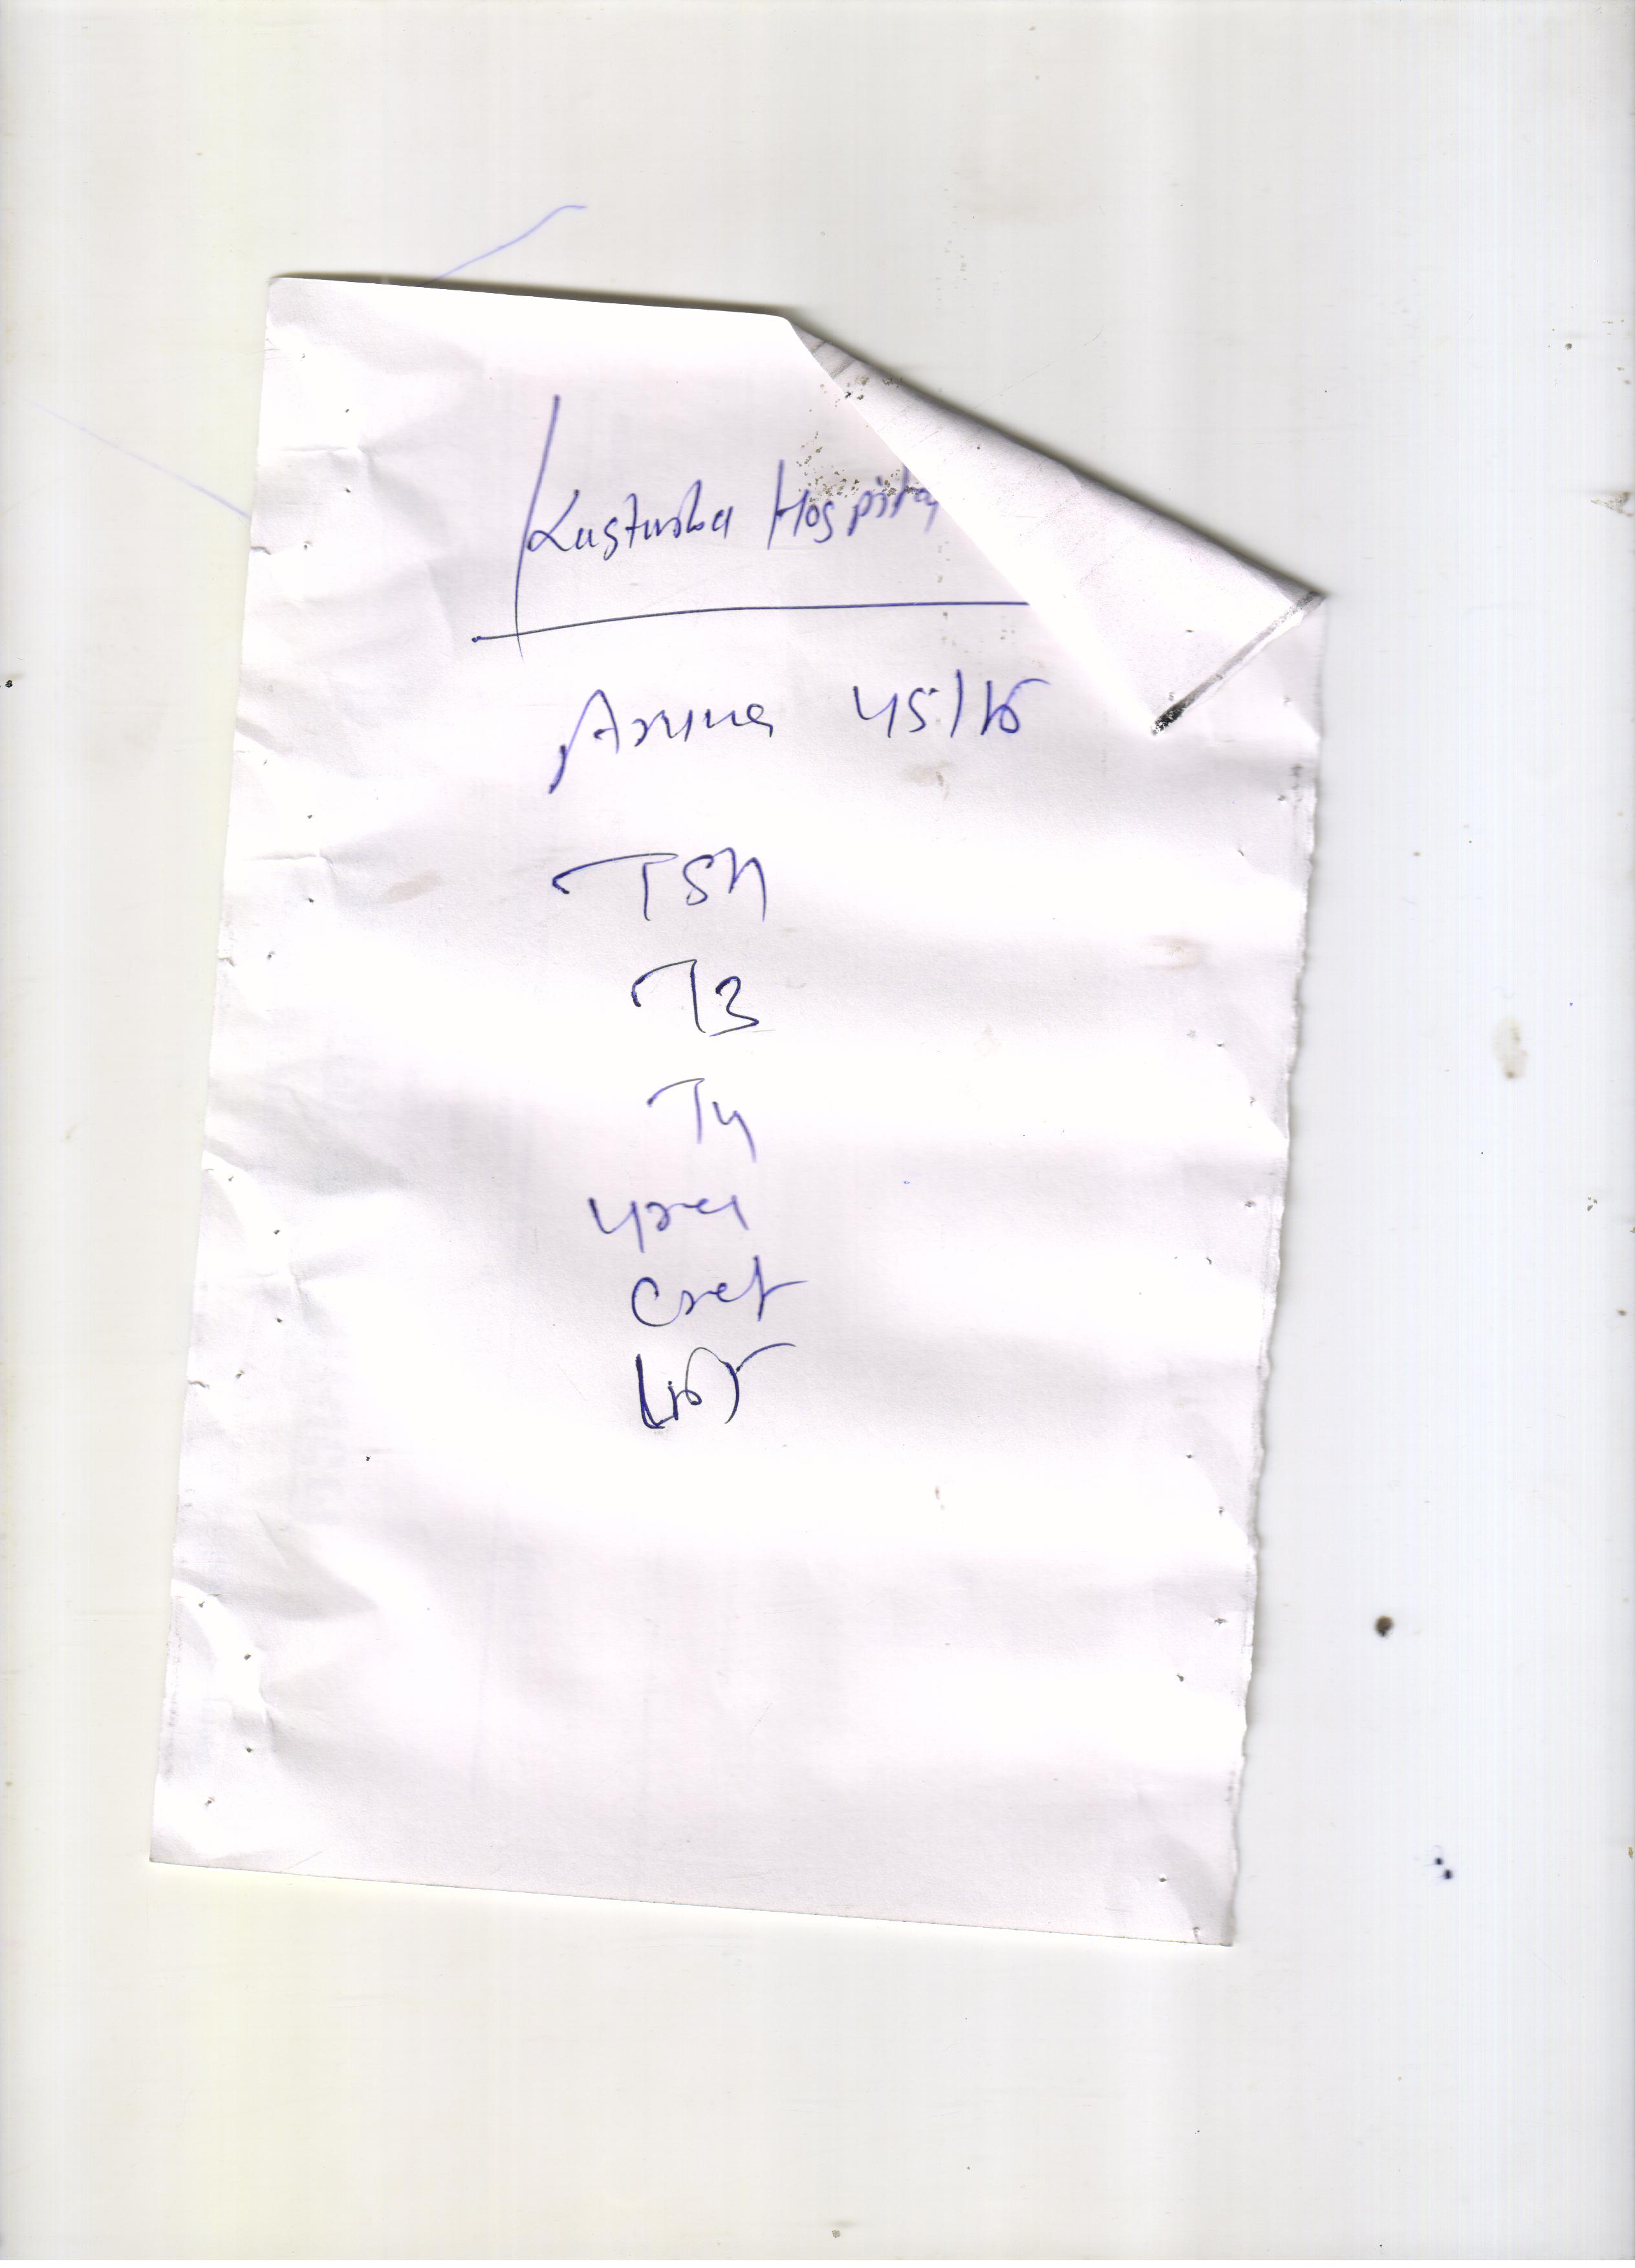 Kasturba Hospital
Aruna 45/F
TSH
T3
T4
Urea
Creat